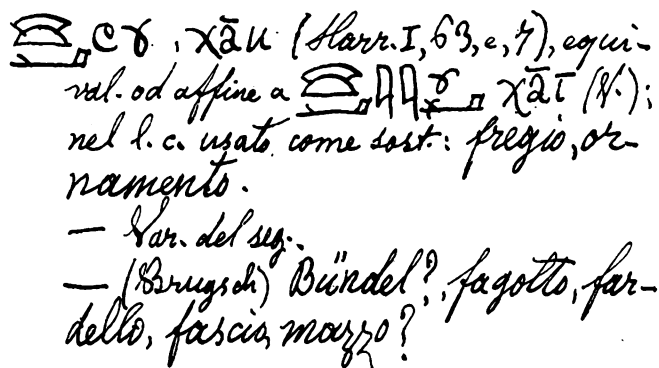 χāu (Harr. I, 63, c, 7), equi-
val. od affine a χāī (V.);
nel l. c. usato come sost.: fregio, or-
namento.
— Var. del seg.
— (Brugsch) Bündel?, fagotto, far-
dello, fascio, mazzo?